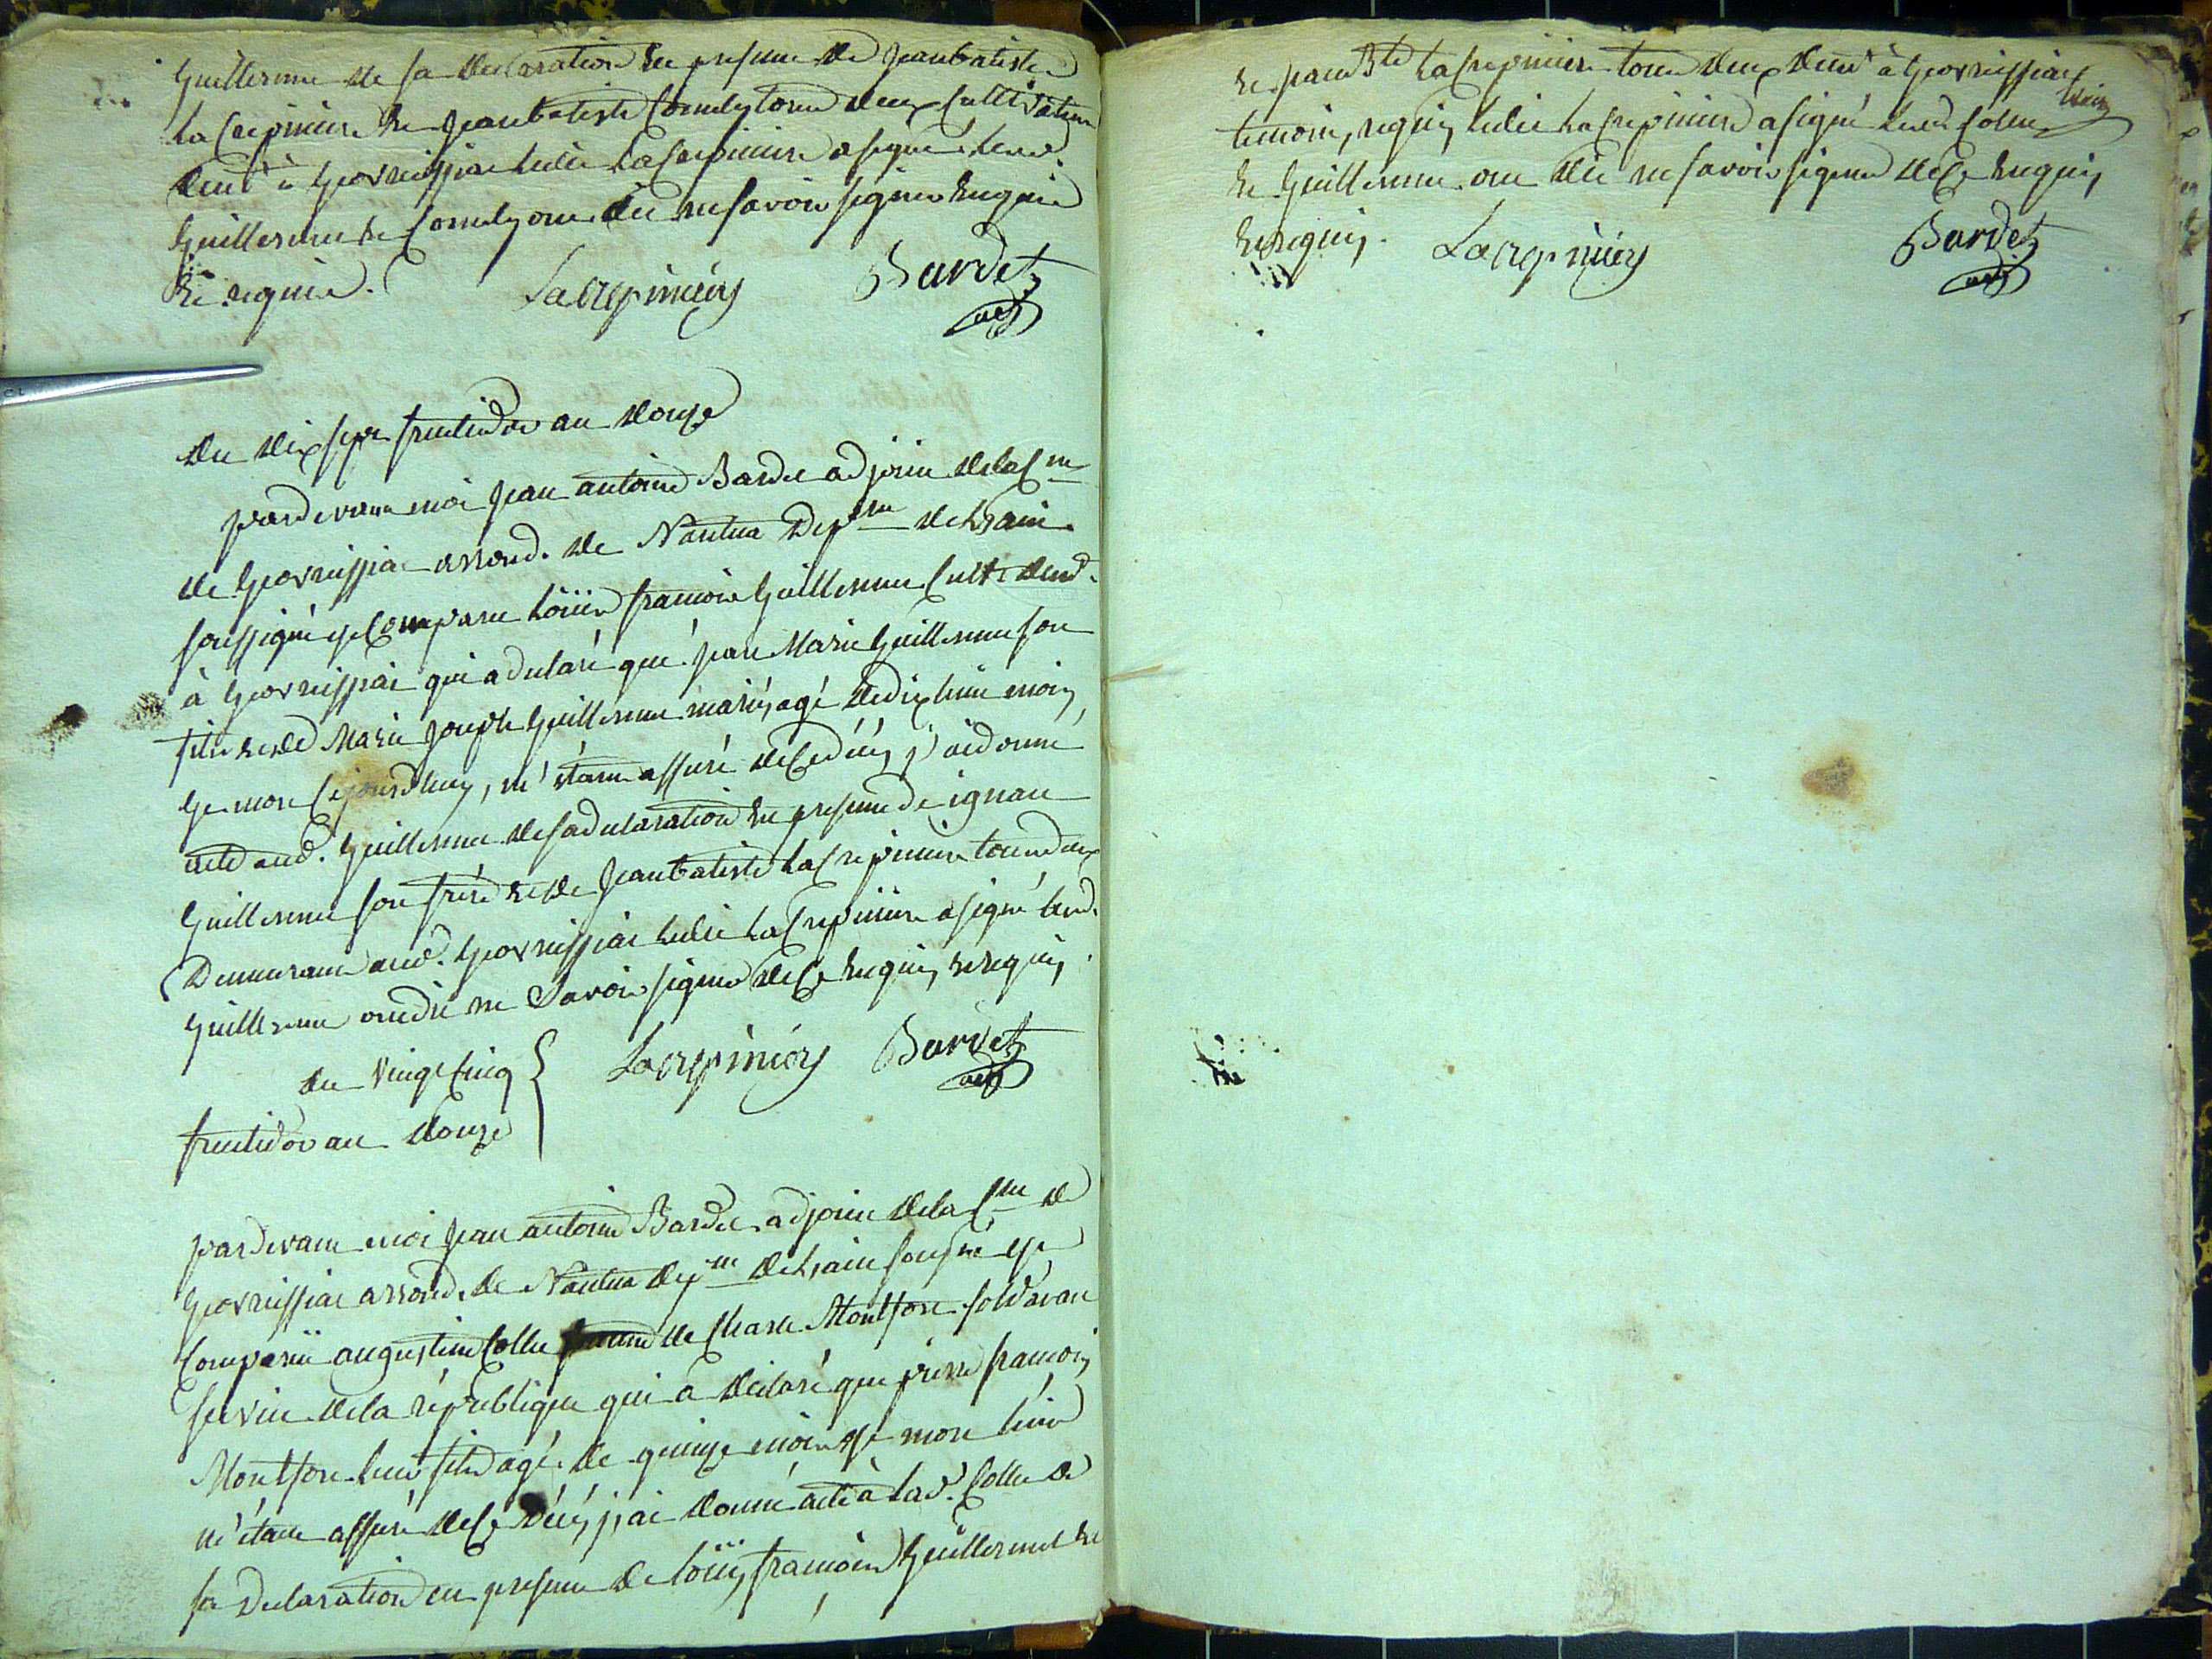 Guillerme de sa declaration en presence de Jeanbatiste
La Crepiniere et Jeanbatiste Comby tous deux cultivateur
demt à Geovreissiat ledit LaCrepiniere a signé led.
Guillerme et Comby ont dit ne savoir signer enquis
et requis. Lacrepiniéry Bardet
adj
du dix sept fructidor an douze
pardevant moi Jean antoine Bardet adjoint de la Cne
de Geovreissiat arrond. de Nantua Depmt de l'ain
soussigné est Comparu Loüis francois Guillerme Cult. demt
à Geovreissiat qui a declaré que jean Marie Guillerme son
fils et de Marie Joseph Guillerme mariés agé de dix huit mois
est mort Cejourdhuy, m'étant assuré de Ce décés j'ai donné
acte aud. Guillerme de sa declaration en presence de ignace
Guillerme son frére et de Jeanbatiste LaCrepiniere tous deux
Demeurant aud. Geovreissiat ledit LaCrepiniere a signé led.
Guillerme ont dit ne Savoir signer de Ce enquis et requis.
du vingt Cinq Lacrepiniéry Bardet
adj
fructidor an douze
pardevant moi Jean antoine Bardet adjoint de la Cne de
Geovreissiat arrond. de Nantua Depmt de l'ain sousné est
Comparüe augustine Collet femme de Charle Montfort soldat au
service de la république qui a déclaré que pierre francois
Montfort leur fils agé de quinze mois est mort hier
m'étant assuré de Ce Décés j'ai donné acte à lad. Collet de
sa Declaration en presence de Loüis francois Guillermet et
de jean Bte LaCrepiniere tous deux demt à Geovreissiat
temoins requis ledit LaCrepiniere a signé led. Collet
et Guillerme ont dit ne savoir signer de Ce enquis
et requis. Lacrepiniéry Bardet
adj